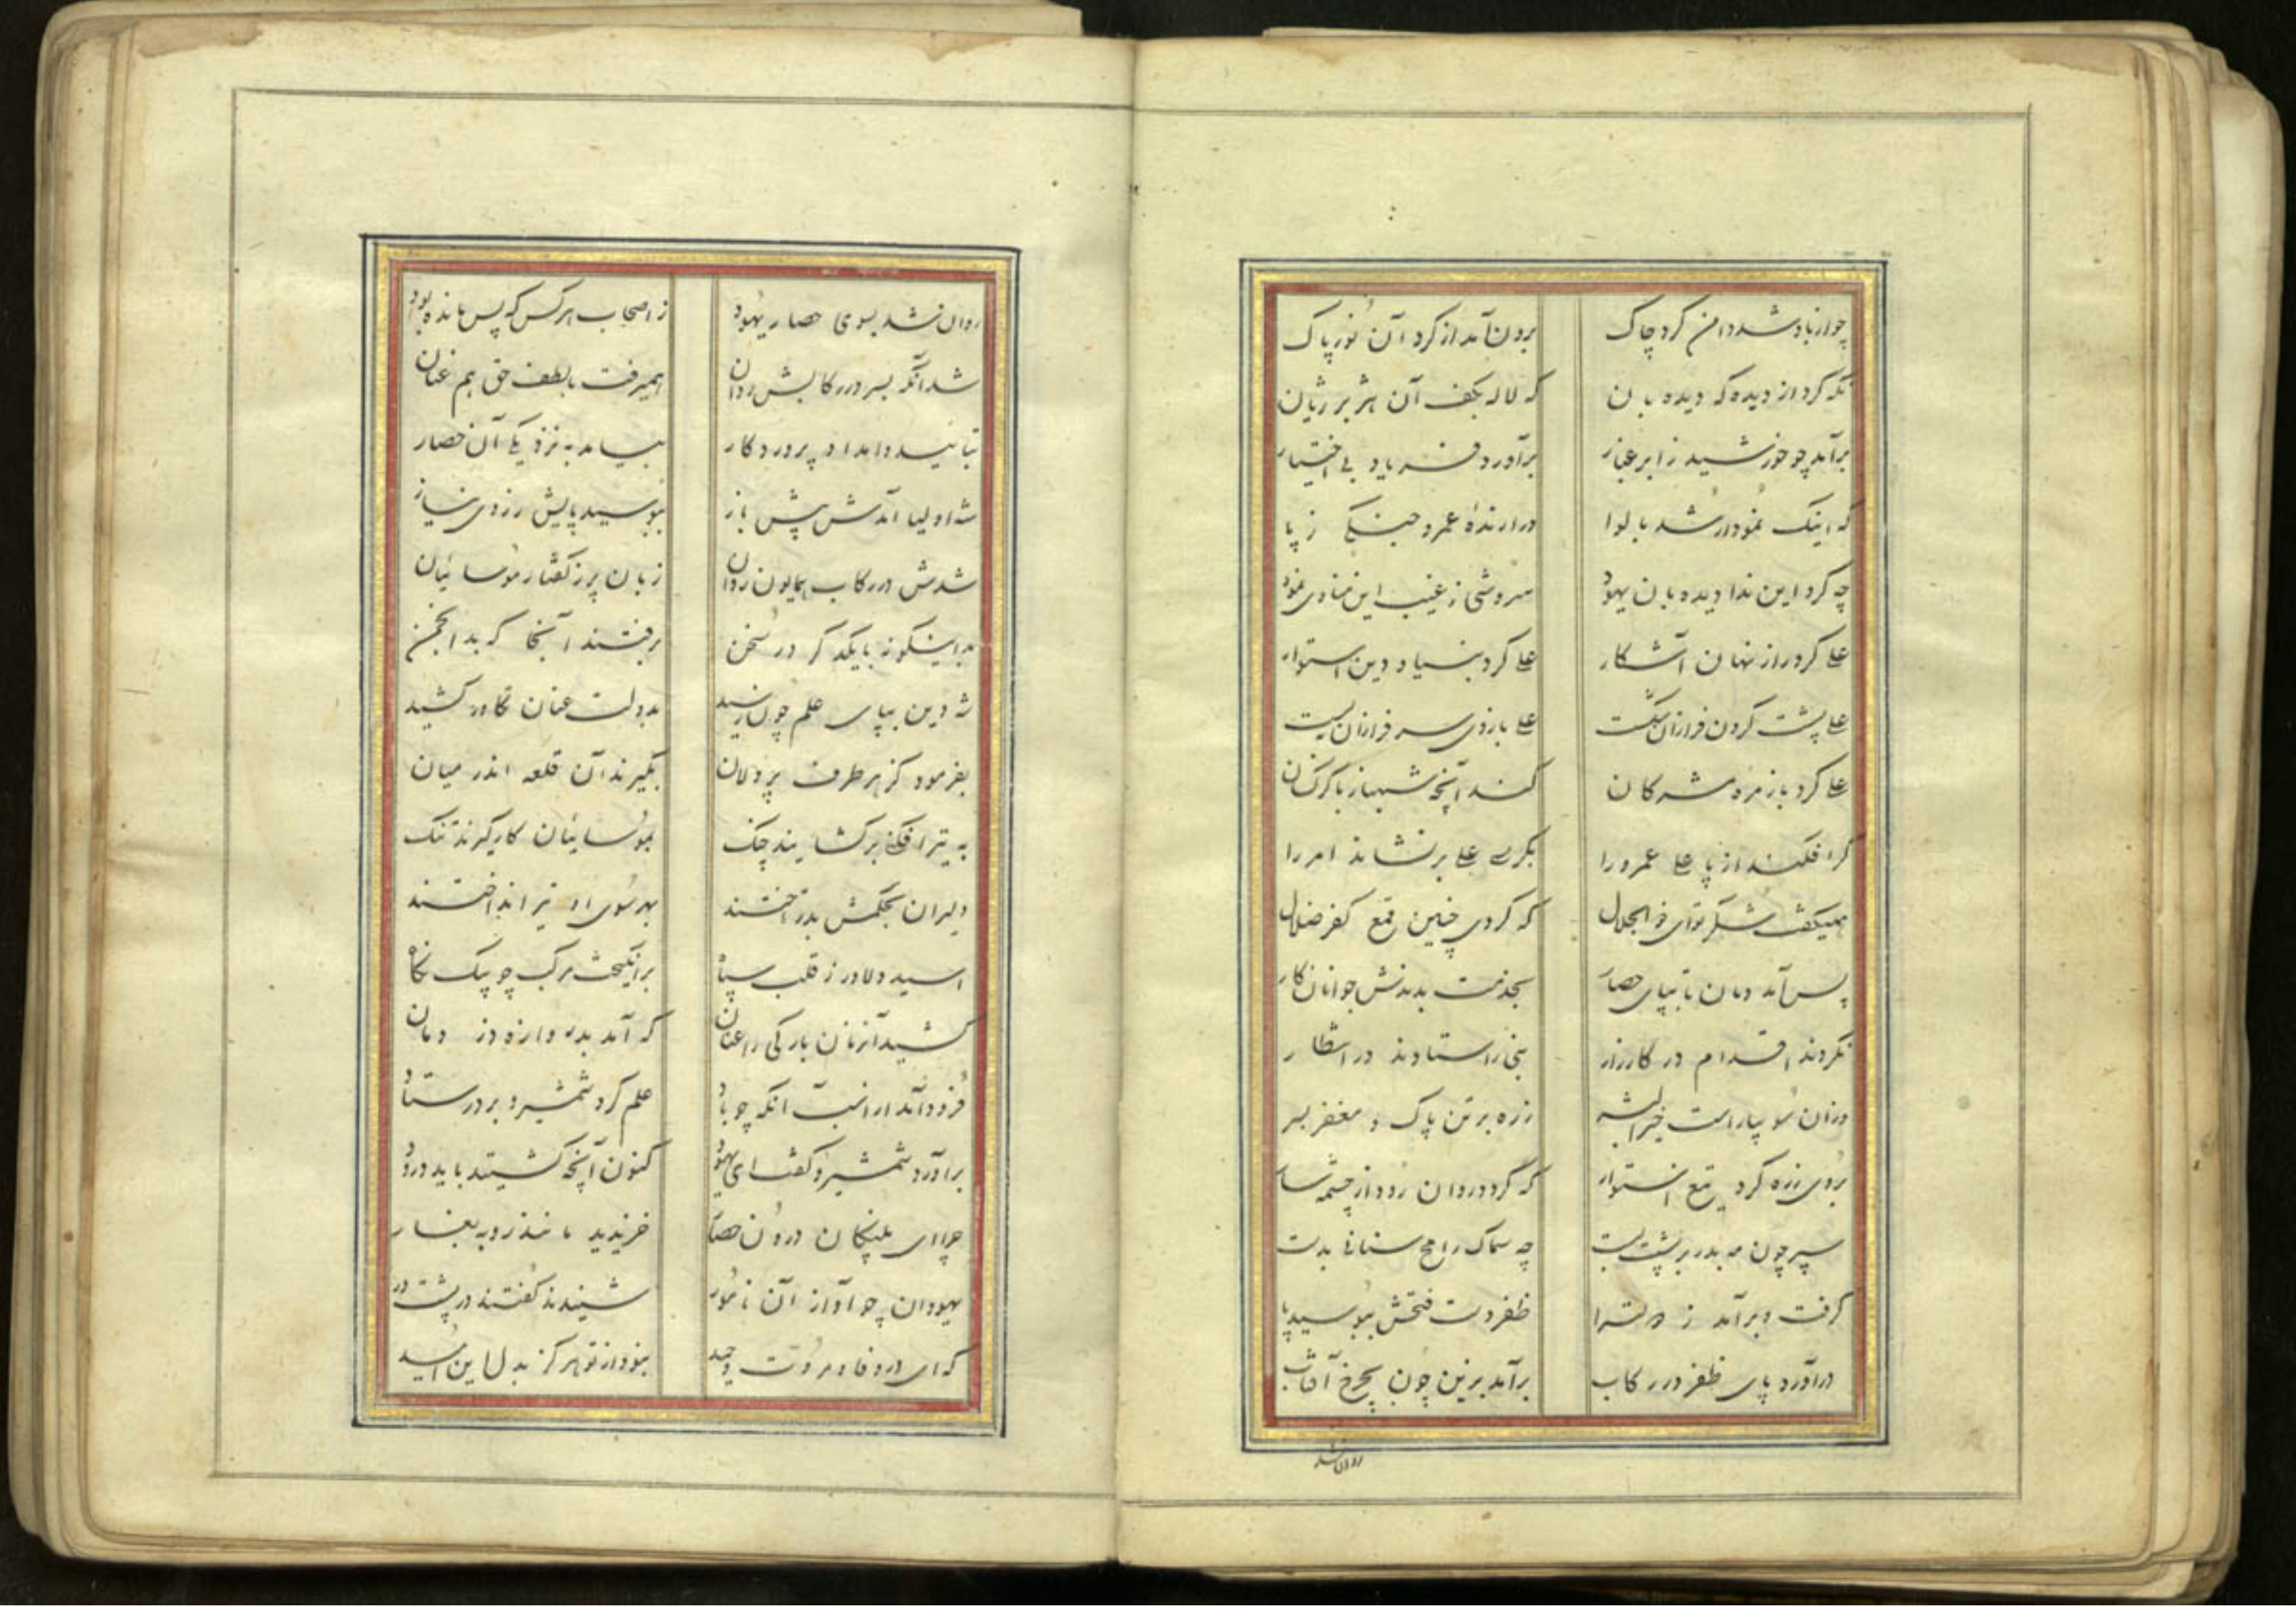 چو از باد شد دامن کرد چاک    برون آمد از کرد آن نور پاک
نکه کرد از دیده که دیده بان    که لاله بکف آن هژبر ژیان
برآمد چو خورشید ز ابر غبار    برآورد فریاد بی اختیار
که اینک نمودار شد با لوا    درارنده عمرو جنکی ز پا
چه کرد این ندا دیده بان یهود    سروشی ز غیب این منادی نمود
علی کرد راز نهان آشکار    علی کرد بنیاد دین استوار
علی پشت کردن فرازان شکست    علی بازوی سرفرازان ببست
علی کرد بازمره مشرکان    کند آنچه شهباز با کرکسان
کر افکند از پا علی عمرو را    بکرسی علی بر نشاند امر را
همیکفت شکر تو ای ذوالجلال    که کردی چنین قمع کفر ضلال
پس آمد دمان تا بپای حصار    بخدمت بدندش جوانان کار
نکردند اقدام در کارزار    نبی را ستادند در انتظار
وزان سو بیاراست خیر البشر    زره بر تن پاک و مغفر بسر
بروی زره کرد تیغ استوار    که گردد روان رود از چشمه سار
سپر چون مه بدر بر پشت بست    چه سماک رامح سنانی بدست
کرفت و برآمد ز        ظفر دست فتحش ببوسید پا
درآورد پای ظفر در رکاب    برآمد بزین چون بچرخ آفتاب
روان شد
روان شد بسوی حصار یهود    ز اصحاب هر کس که پس مانده بود
شد آنکه بسر در رکابش روان    همیرفت با لطف حق هم عنان
بتائید و امداد پروردکار    بیامد به نزدیکی آن حصار
شه اولیا آمدش پیش باز    ببوسید پایش ز روی نیاز
شدش در رکاب همایون روان    زبان پر ز کفتار موسائیان
بدینکونه با یکدکر در سخن    برفتند آنجا که بد انجمن
شه دین بپای علم چون رسید    بدولت عنان تکاور کشید
بفرمود کز هر طرف پر دلان    بکیرند آن قلعه اندر میان
به تیر افکنی برکشایند چنک    بموسائیان کار کیرند تنک
دلیران بحکمش بدر آختند    بهر سوی او تیر انداختند
اسید دلاور ز قلب سپاه    برانکیخت مرکب چو پیک نکاه
کشید آنزمان بارکی را عنان    که آمد بدروازه دز دمان
فرود آمد از اسب آنکه چو باد    علم کرد شمشیر و بر در ستاد
برآورد شمشیر و کفت ای یهود    کنون آنچه کشتید باید درود
چرا ای پلنکان درون حصار    خزیدید مانند روبه بغار
یهودان چو آواز آن نامور    شنیدند کفتند در پشت در
که ای در وفا و مروت وحید    نبود از تو هرکز بدل این امید